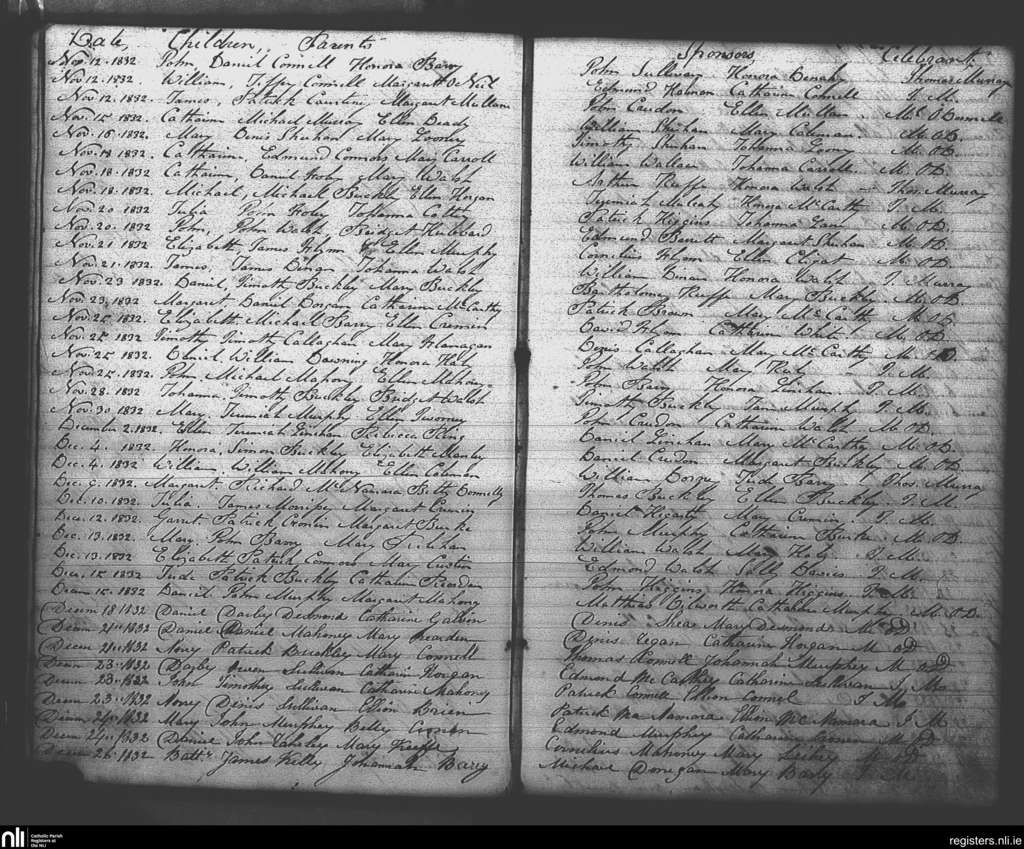 Date, Children, Parents Sponsors Celebrant.
Nov. 12. 1832 John, Daniel Connell Honora Barry John Sullivan Honora Thomas Murray
Nov 12. 1832. William, Connell Margaret O Neil Edmond Catharine Connell T. M.
Nov. 12 1832. James, Patrick Margaret John Ellen Mc O Donnell
Nov. 15 1832. Catharine Michael Murray Ellen Brady William Shehan Mary Coleman. M. O.D.
Nov. 16. 1832. Mary Denis Shehan Mary Looney Timothy Shehan Johanna Looney M. O.D.
Nov. 18 1832. Catharine, Edmund Connors Mary Carroll William Wallace Johanna Carroll. M. O.D.
Nov. 18. 1832. Catharine, Daniel Mary Walsh Arthur Keeffe Honora Walsh Thos. Murray
Nov. 18. 1832. Michael, Michael Buckley Ellen Horgan Jeremiah Honora McCarth T. M.
Nov. 20. 1832 Julia John Foley Johanna Patrick Higgins Johanna M. O.D.
Nov. 20. 1832 John, John Walsh, Bridget Hubbard Edmond Barrett Margaret Shehan M. O.D.
Nov. 21 1832 Elizabeth James Ellen Murphy Cornelius Ellen M. O.D.
Nov. 21. 1832. James, James Johanna Walsh William Honora Walsh T. Murray
Nov. 23 1832. Daniel, Timoth Buckley Mary Buckley Bartholomew Keeffe Mary Buckley M. O.D.
Nov. 23. 1832 Margaret Daniel Catharine McCarthy Patrick Brown Mary McCarth M. O.D.
Nov. 25. 1832. Elizabeth. Michael Barry Ellen Cremin David Catharine White M. O.D.
Nov. 25 1832 Timothy Timoth Callaghan Mary Flanagan Denis Callaghan Mary McCarthy M. O.D.
Nov. 25 1832. Daniel William Downing Honora Haly John Walsh Mary T. M.
Nov. 25. 1832. John. Michael Mahony Ellen Mahony John Barry Honora Linehan T. M.
Nov. 28. 1832 Johanna, Timoth Buckley Bridget Walsh Timoth Buckley Murphy T. M.
Nov. 30 1832 Mary. Murphy Ellen Twomey John Creedon Catharine Walsh M. O.D.
December 2. 1832. Ellen Jeremiah Linehan Rebecca Ring Daniel Linehan Mary McCarthy M. O.D.
Dec. 4. 1832. Honora, Simon Buckley Elizabeth Stanley Daniel Creedon Margaret Buckley M. O.D.
Dec. 4. 1832 William, William Mahony Ellen Colman William Jude Barry Thos. Murray
Dec. 9. 1832. Margaret. Richard McNamara Betty Donnelly Thomas Buckley Ellen Buckley T. M.
Dec. 10. 1832. Julia. James Morrissey Margaret Cremin Daniel Hegarty Mary Cremin T. M.
Dec. 12. 1832. Garret Patrick Cronin Margaret Burke John Murphy Catharine Burke M. O.D.
Dec. 13. 1832. Mary. John Barry Mary William Walsh Mary Haly T. M.
Dec. 13. 1832 Elizabeth Patrick Connors Mary Curtin Edmond Walsh Sally Davies T. M.
Dec. 15. 1832 Jude Patrick Buckley Catharine Reardon John Higgins Honora Higgins. T. M.
Decem 15. 1832 Daniel John Murphy Margaret Mahony Matthias Aylworth Catharine Murphy M. O.D.
Decem 18 1832 Daniel Darby Desmond Catharin Galvin Denis Shea Mary Desmond M. OD
Decem 21st 1832 Daniel Daniel Mahoney Mary Reardon Denis Regan Catharine Horgan M OD
Decem 21st 1832 Nony Patrick Buckley Mary Connell Thomas Connell Johannah Murphey M OD
Decem 23. 1832 Darby Owen Sullivan Catharin Horgan Edmond McCarthey Catharin Sullivan J M
Decem 23. 1832 John Timothey Sullivan Catharin Mahony Patrick Connell Ellen Connel J M
Decem 23. 1832 Noney Denis Sullivan Ellen Brien Patrick McNamara Ellen McNamara J M
Decem 24th 1832 Mary John Murphey Betty Cronen Edmond Murphey Catharin Cronen M OD
Decem 24th 1832 Daniel John Mary Keeffe Cornelius Mahoney Mary Leehy M OD
Decem 26. 1832 Batt. James Kelly Johannah Barry Michael Donegan Mary Barry J M
nli Catholic Parish Registers at the NLI
registers.nli.ie